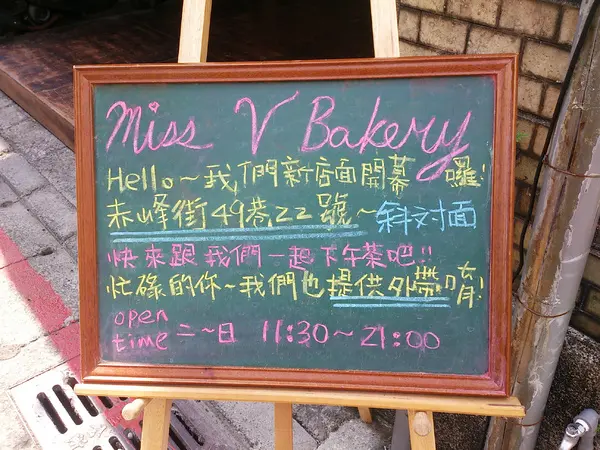 Miss V Bakery
Hello~我們新店面開幕囉!
赤峰街49巷22號~斜对面
快來跟我們一起下午茶吧!!
忙碌的你~我們也提供外帶唷!
open time 二~日 11:30~21:00